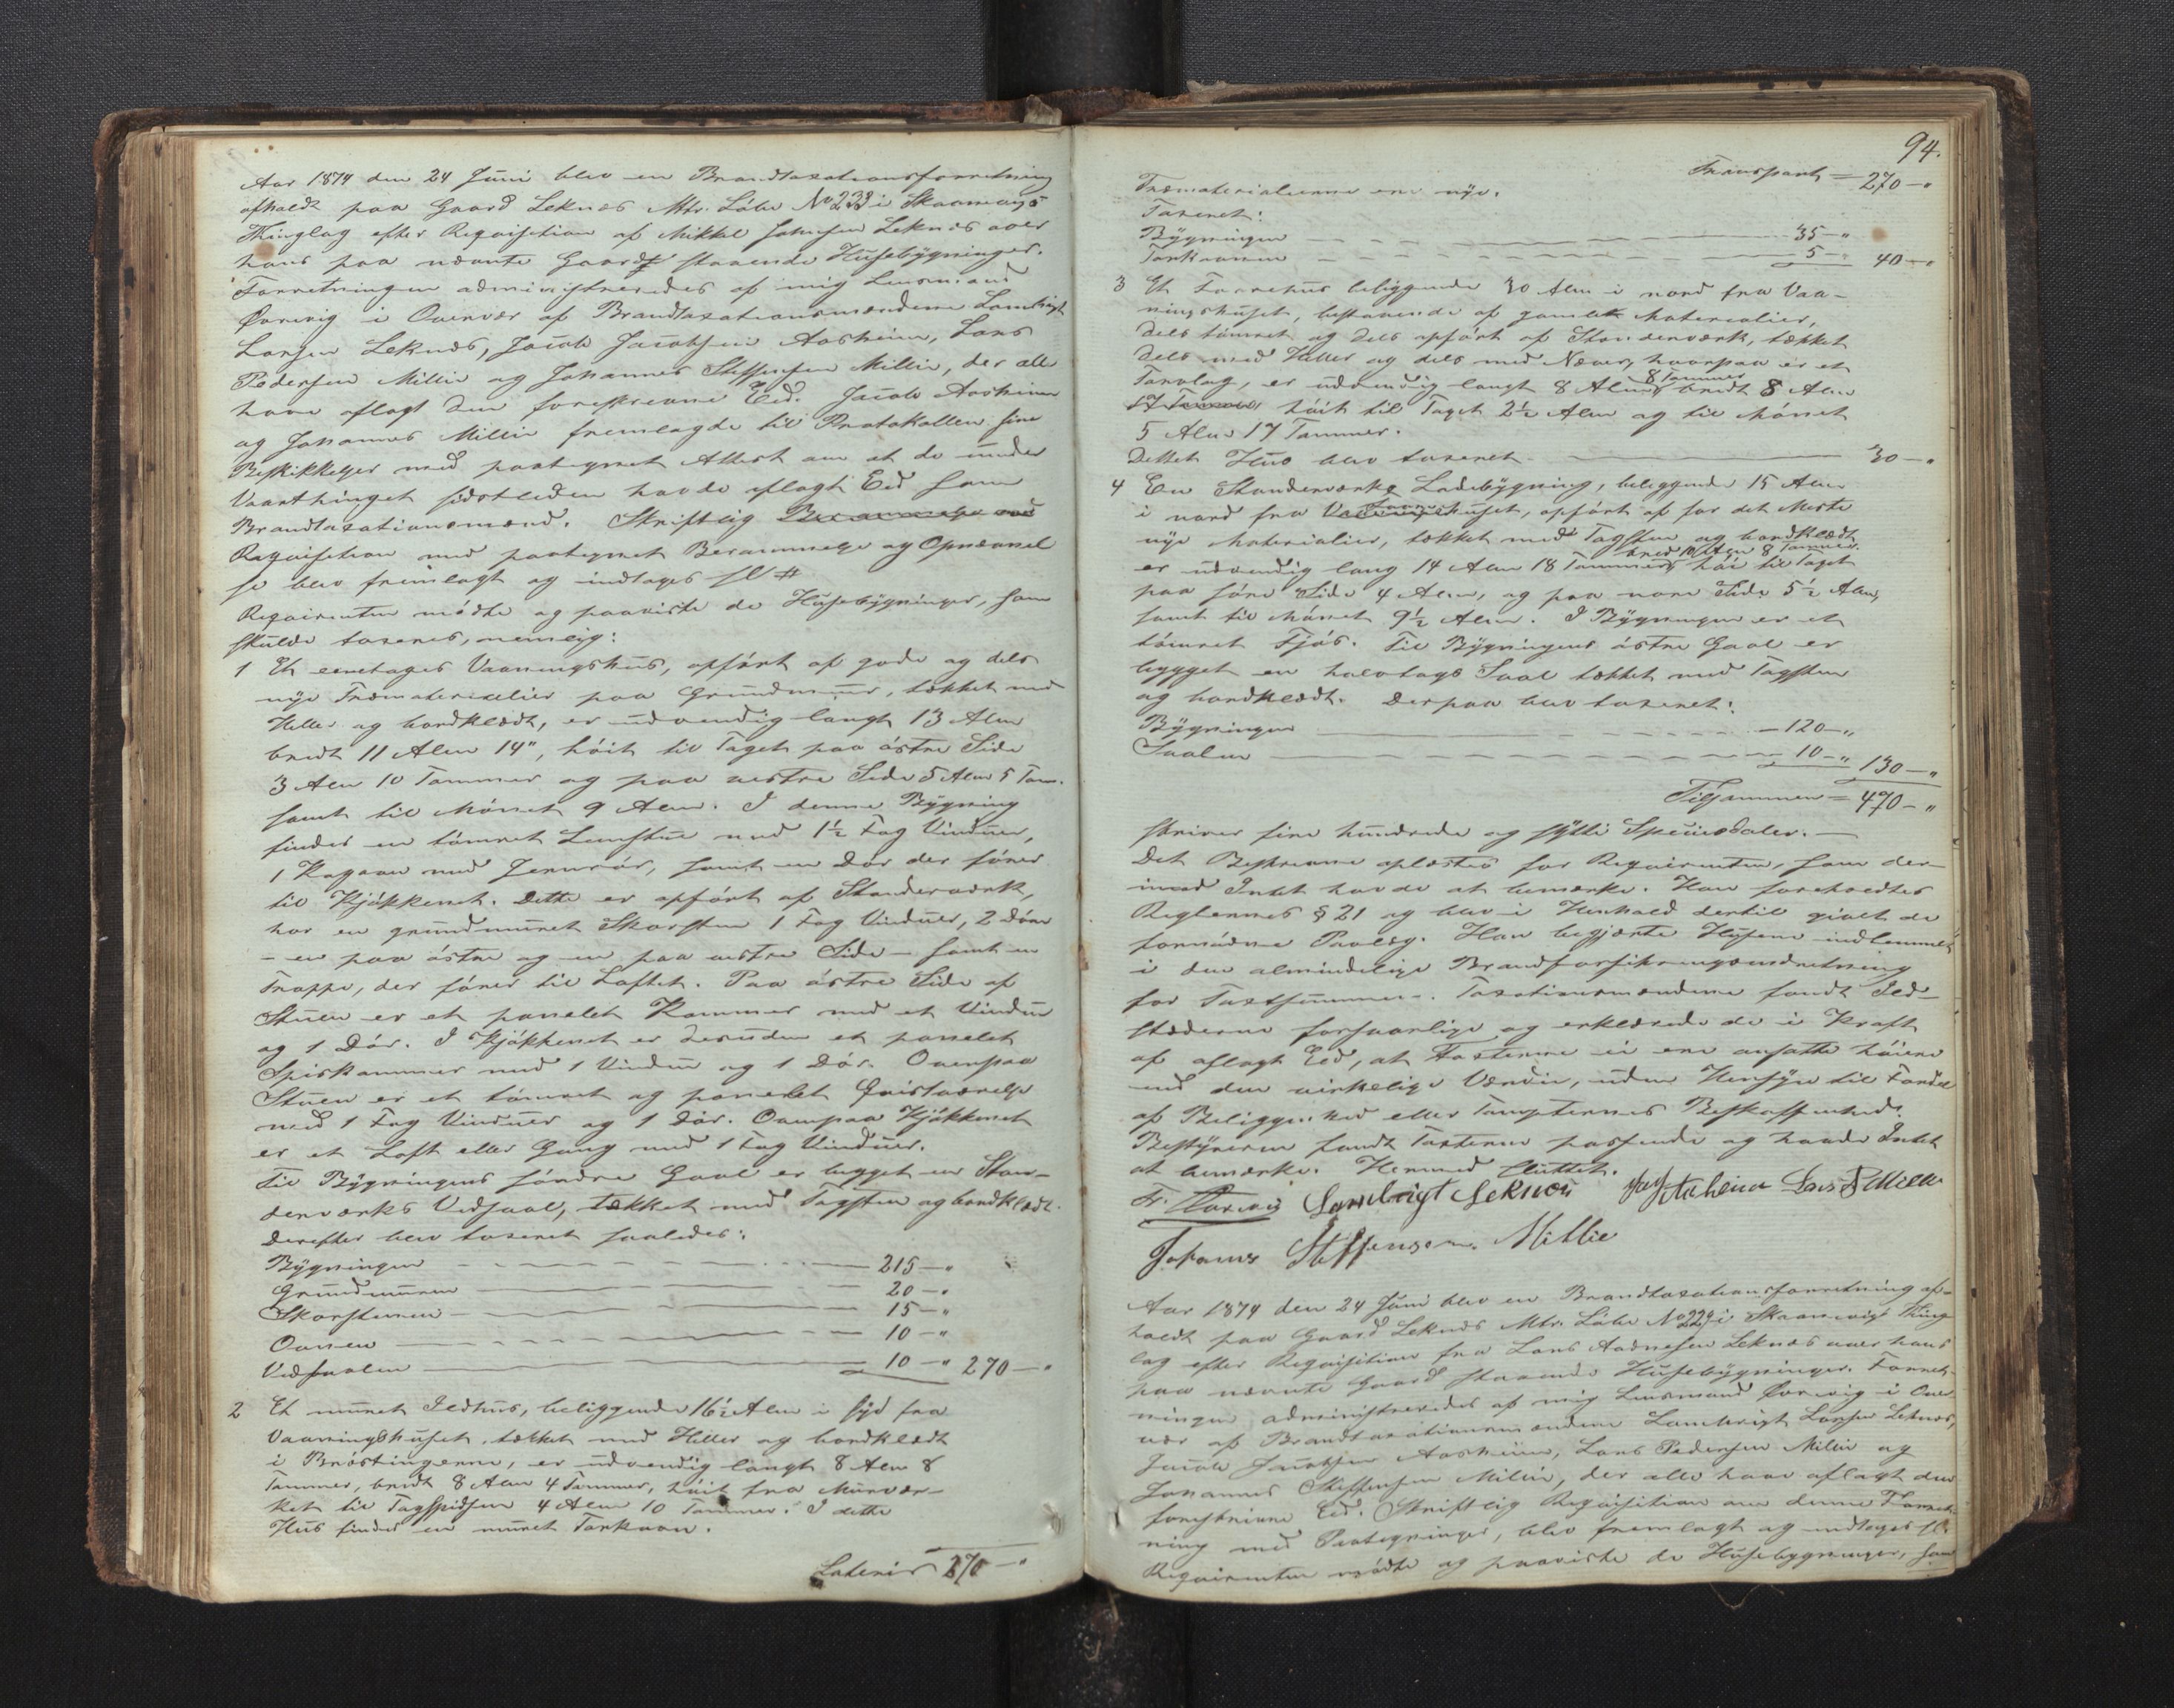 Aar 1874 den 24 Juni blev en Brandtaxationsforretning
afholdt paa Gaard Leknæs Mtr. Løbe No 233 i Skaanevigs
Thinglag efter Requisition af Mikkel Johnsen Leknæs over
hans paa nævnte Gaard staaende Husebygninger.
Forretningen administreredes af mig Lensmand
i Overvær af Brandtaxationsmændene Lambrigt
Larsen Leknæs, Jacob Jacobsen Aasheim, Lars
Pedersen Millie og Johannes Steffensen Millie, der alle
have aflagt den foreskrevne Eed. Jacob Aasheim
og Johannes Millie fremlagde til Protokollen sine
Beskikkelser med paategnet Attest om at de under
Vaarthinget sidstleden havde aflagt Eed som
Brandtaxationsmænd. Skriftlig Berammelse
Requisition med paategnet Berammelse og Opnævnel
se blev fremlagt og indtages sl #
Requirenten mødte og paaviste de Husebygninger, som
skulde taxeres, nemlig:
1 Et eenetages Vaaningshus, opført af gode og dels
nye Træmaterialier paa Grundmuur, tækket med
Heller og bordklædt, er udvendig langt 13 Alen
bredt 11 Alen 14", høit til Taget paa østre Side
3 Alen 10 Tommer og paa vestre Side 5 Alen 5 Tom.
samt til Mønet 9 Alen. I denne Bygning
findes en tømret Lemstue med 1½ Fag Vinduer,
1 Kagovn med Jernrør, samt en Dør der fører
til Kjøkkenet. Dette er opført af Standerværk,
har en grundmuret Skorsten 1 Fag Vinduer, 2 Døre
- en paa østre og en paa vestre Side - samt en
Trappe, der fører til Loftet. Paa østre Side af
Stuen er et panelet Kammer med et Vindue
og 1 Dør. I Kjøkkenet er desuden et panelet
Spiskammer med 1 Vindue og 1 Dør. Ovenpaa
Stuen er et tømret og panelet Qvistværelse
med 1 Fag Vinduer og 1 Dør. Ovenpaa Kjøkkenet
er et Loft eller Gang med 1 Fag Vinduer.
Til Bygningens søndre Gavl er bygget en Stan-
derværks Vedsval, tækket med Tagsten og bordklædt.
Derefter blev taxeret saaledes:
Bygningen 215 - "
Grundmuren 20 - "
Skorstenen 15 - "
Ovnen 10 - "
Vedsvalen 10 - " 270 - "
2 Et muret Ildhus, beliggende 16½ Alen i syd fra
Vaaningshuset, tækket med Heller og bordklædt
i Brøstingerne, er udvendig langt 8 Alen 8
Tommer, bredt 8 Alen 4 Tommer, høit fra Murvær-
ket til Tagspidsen 4 Alen 10 Tommer. I dette
Hus findes en muret Torkeovn.
Lateris 270 - "
94.
Transport = 270 - "
Træmaterialierne ere nye.
Taxeret:
Bygningen 35 - "
Torkeovnen 5 - " 40 - "
3 Et Faarehus beliggende 30 Alen i nord fra Vaa-
ningshuset, bestaaende af gamle Materialier,
dels tømret og dels opført af Standerværk, tækket
dels med Heller og dels med Næver, hvorpaa er et
Torvlag, er udvendig langt 8 Alen 8 Tommer bredt 8 Alen
17 Tommer høit til Taget 2½ Alen og til Mønet
5 Alen 17 Tommer.
Dettet Hus blev taxeret 30 - "
4 En Standerværks Ladebygning, beliggende 15 Alen
i nord fra Vaaningshuset, opført af for det Meste
nye Materialier, tækket med Tagsten og bordklædt
er udvendig lang 14 Alen 18 Tommer, bred 10 Alen 8 Tommer høi til Taget
paa søre Side 4 Alen, og paa nore Side 5½ Alen,
samt til Mønet 9½ Alen. I Bygningen er et
tømret Fjøs. Til Bygningens østre Gavl er
bygget en halvtags Sval tækket med Tagsten
og bordklædt. Derpaa blev taxeret:
Bygningen 120 - "
Svalen 10 - " 130 - "
Tilsammen = 470 - "
skriver fire hundrede og sytti Speciedaler. -
Det Beskrevne oplæstes for Requirenten, som der-
imod Intet havde at bemærke. Han foreholdtes
Reglernes § 21 og blev i Henhold dertil givet de
fornødne Paalæg. Han begjærte Husene indlemmet
i den almindelige Brandforsikringsindretning
for Taxtsummen. Taxationsmændene fandt Ild-
stæderne forsvarlige og erklærede de i Kraft
af aflagt Eed, at Taxterne ei ere ansatte høiere
end den virkelige Værdie, uden Hensyn til Fordel
af Beliggenhed eller Tompternes Beskaffenhed.
Bestyreren fandt Taxterne passende og havde Intet
at bemærke. Hermed sluttet.
Lambrigt Leknæs Lars P Millie
Johannes Steffensen Millie
Aar 1874 den 24 Juni blev en Brandtaxationsforretning af-
holdt paa Gaard Leknæs Mtr. Løbe No 229 i Skaanevigs Thing
lag efter Requisition fra Lars Aadnesen Leknæs over hans
paa nævnte Gaard staaende Husebygninger. Forret-
ningen administreredes af mig Lensmand i Over
vær af Brandtaxationsmændene Lambrigt Larsen Leknæs,
Jacob Jacobsen Aasheim, Lars Pedersen Millie og
Johannes Steffensen Millie, der alle have aflagt den
foreskrevne Eed. Skriftlig Requisition om denne Forret-
ning med Paategninger, blev fremlagt og indtages sl.
Requirenten mødte og paaviste de Husebygninger, som